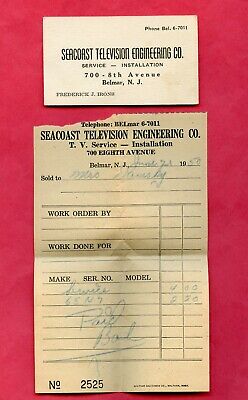 Phone Bel. 6-7011
SEACOAST TELEVISION ENGINEERING CO.
SERVICE - INSTALLATION
700 - 8th Avenue
Belmar, N. J.
FREDERICK J. IRONS
Telephone: BELmar 6-7011
SEACOAST TELEVISION ENGINEERING CO.
T. V. Service — Installation
700 EIGHTH AVENUE
Belmar, N. J., 1950
Sold to Mrs
WORK ORDER BY
WORK DONE FOR
MAKE SER. NO. MODEL
Service 4 00
6SN7 2 50
Paid
No 2525